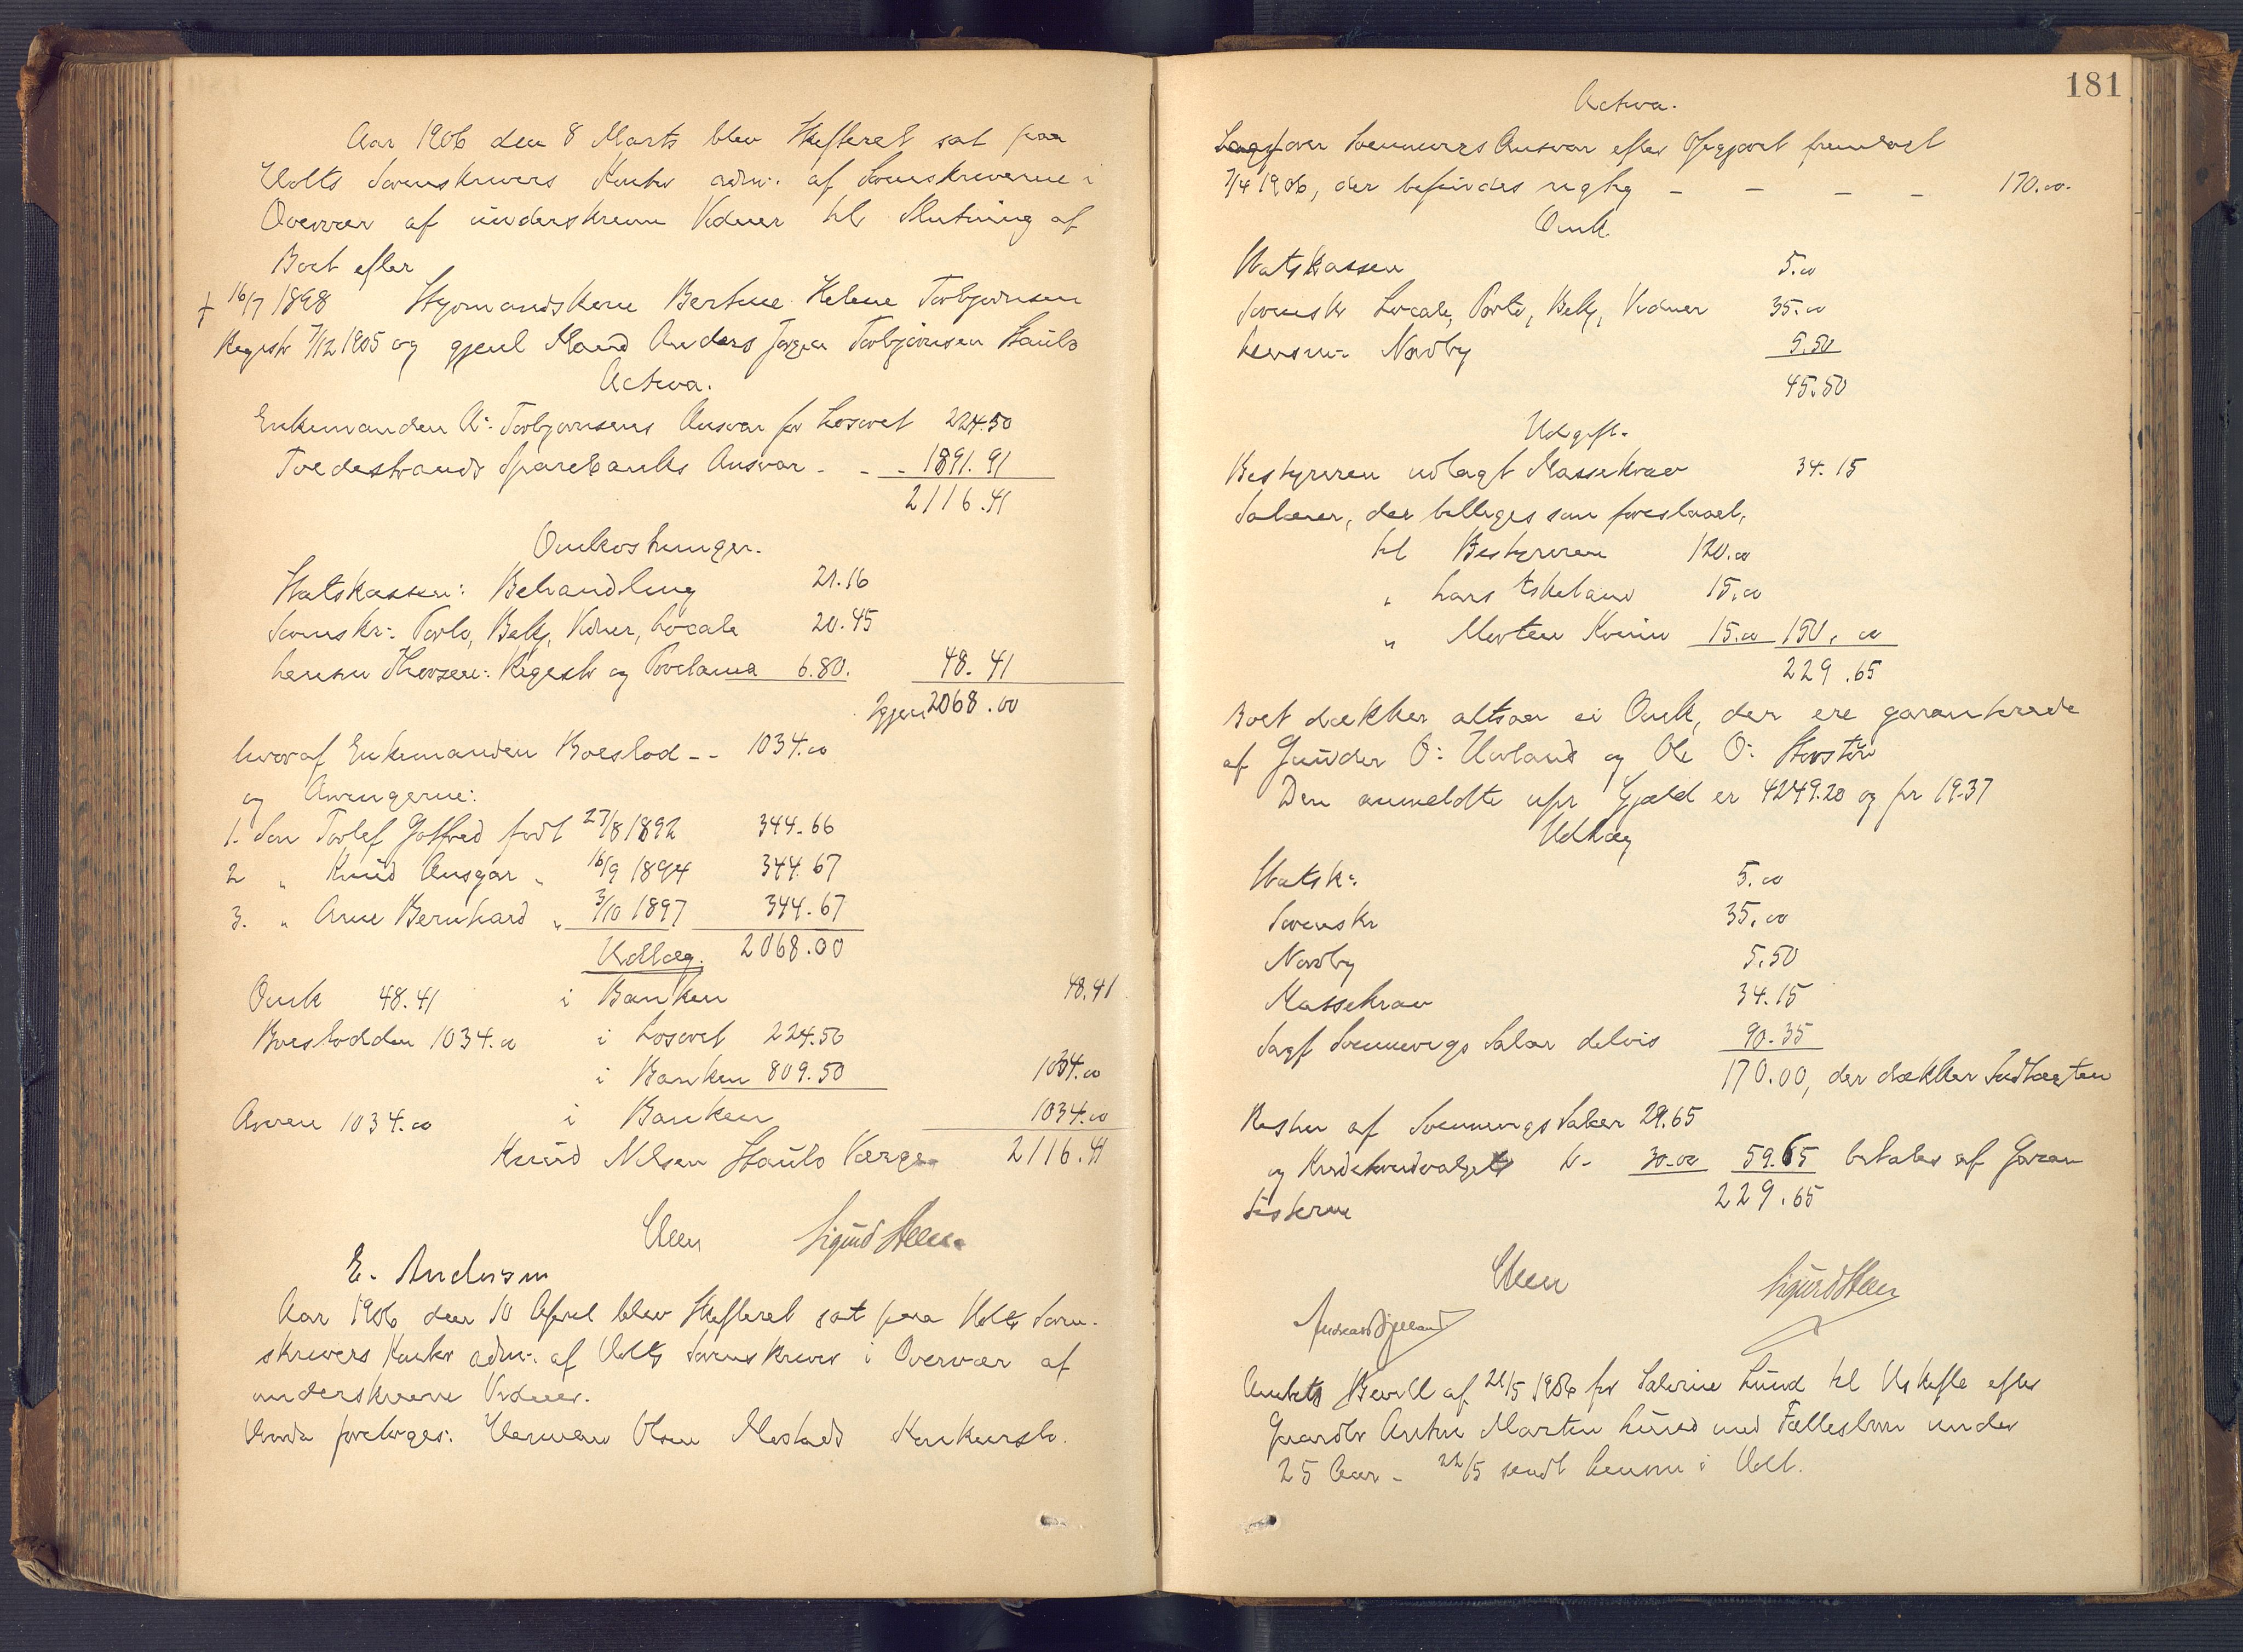 Aar 1906 den 8 Marts blev Skifteret sat paa
Holts Sorenskrivers Kontor adm: af Sorenskriveren i
Overvær af underskrevne Vidner til Slutning af
Boet efter
† 16/7 1898 Styrmandskone Bertine Helene Torbjørnsen
Registr 7/12 1905 og gjenl Mand Anders Jørgen Torbjørnsen Staubø
Activa.
Enkemanden A: Torbjørnsens Ansvar for Løsøret 224.50
Tvedestrands Sparebanks Ansvar - - - 1891.91
2116.41
Omkostninger.
Statskassen: Behandling 21.16
Sorenskr: Porto, Bekj, Vidner, Locale 20.45
Lensm Thorsen: Registr og Proclama 6.80. 48.41
Igjen 2068.00
hvoraf Enkemanden Boeslod -- 1034.00
og Arvingerne:
1. Søn Torlef Gotfred født 27/8 1892 344.66
2 " Knud Ansgar " 16/9 1894 344.67
3. " Arne Bernhard " 3/10 1897 344.67
Udlæg. 2068.00
Omk 48.41 i Banken 48.41
Boeslodden 1034.00 i Løsøret 224.50
i Banken 809.50 1034.00
Arven 1034.00 i Banken 1034.00
Knud Nilsen Staubø Værge 2116.41
Steen Sigurd Steen
E. Andersen
Aar 1906 den 10 April blev Skifteret sat paa Holts Soren-
skrivers Kontor adm: af Holts Sorenskriver i Overvær af
underskrevne Vidner.
foretoges: Olsen Konkursbo.
181
Activa.
Sagf over Svennings Ansvar efter Opgjøret fremlagt
7/4 1906, der befindes rigtig - - - - 170.00.
Omk.
Statskassen 5.00
Sorenskr Locale, Porto, Bekj, Vidner 35.00
Lensm: Nordby 5.50
45.50
Udgift.
Bestyreren udlagt Massekrav 34.15
Salærer, der billiges som foreslaaet,
til Bestyreren 120.00
" Lars Eskeland 15.00
" Morten Kveim 15.00 150.00
229.65
Boet dækker altsaa ei Omk, der ere garanterede
af Gunder O: og Ole O:
Den anmeldte upr Gjæld er 4249.20 og pr 19.37
Udlæg
Statsk: 5.00
Sorenskr 35.00
Nordby 5.50
Massekrav 34.15
Sagf Svennings Salær delvis 90.35
170.00, der dækker Indtægten
Resten af Svennings Salær 29.65
og Kreditorudvalgets kr- 30.00 59.65 betales af Garan
tisterne
229.65
Steen Sigurd Steen
Amtets Bevill af 21/5 1906 for Salvine Lund til Uskifte efter
Gaardbr Anton Martin Lund med Fællesbørn under
25 Aar - 22/5 sendt Lensm i Holt.